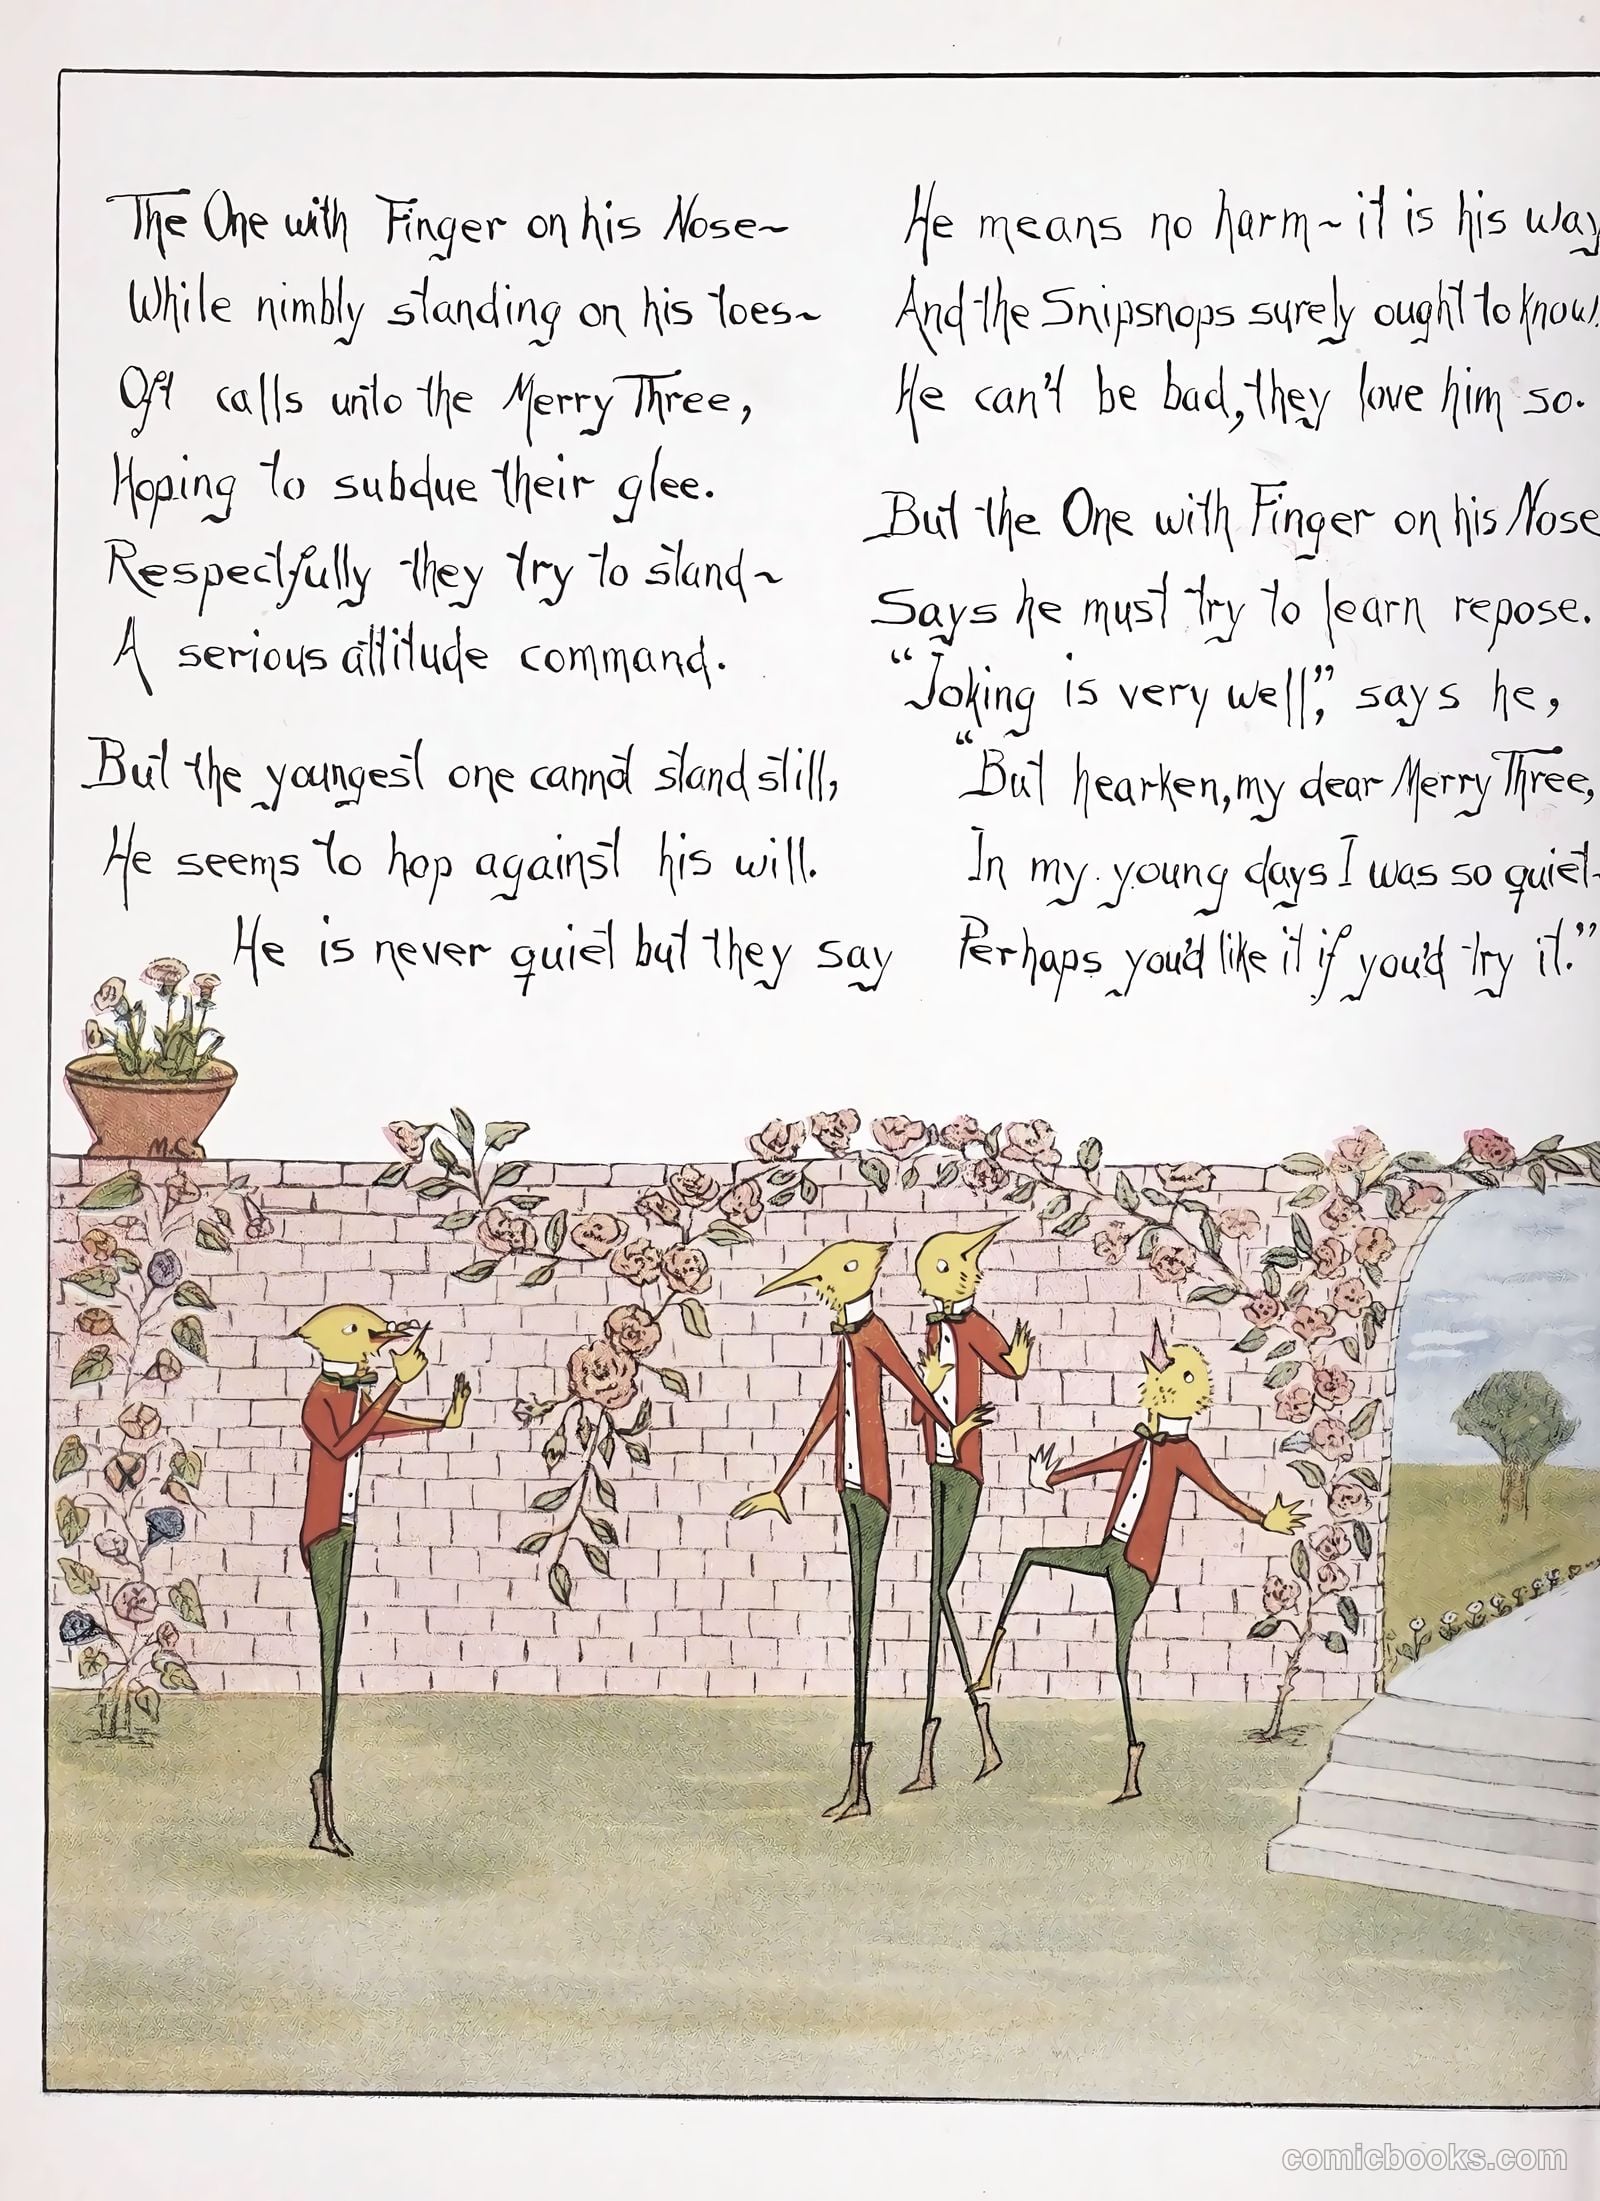 The One with Finger on his Nose~
While nimbly standing on his toes~
Oft calls unto the Merry Three,
Hoping to subdue their glee.
Respectfully they try to stand~
A serious attitude command.
But the youngest one cannot stand still,
He seems to hop against his will.
He is never quiet but they say
He means no harm~it is his way
And the Snipsnops surely ought to know.
He can't be bad, they love him so.
But the One with Finger on his Nose
Says he must try to learn repose.
"Joking is very well," says he,
"But hearken, my dear Merry Three,
In my young days I was so quiet-
Perhaps you'd like it if you'd try it."
M.C.
comicbooks.com